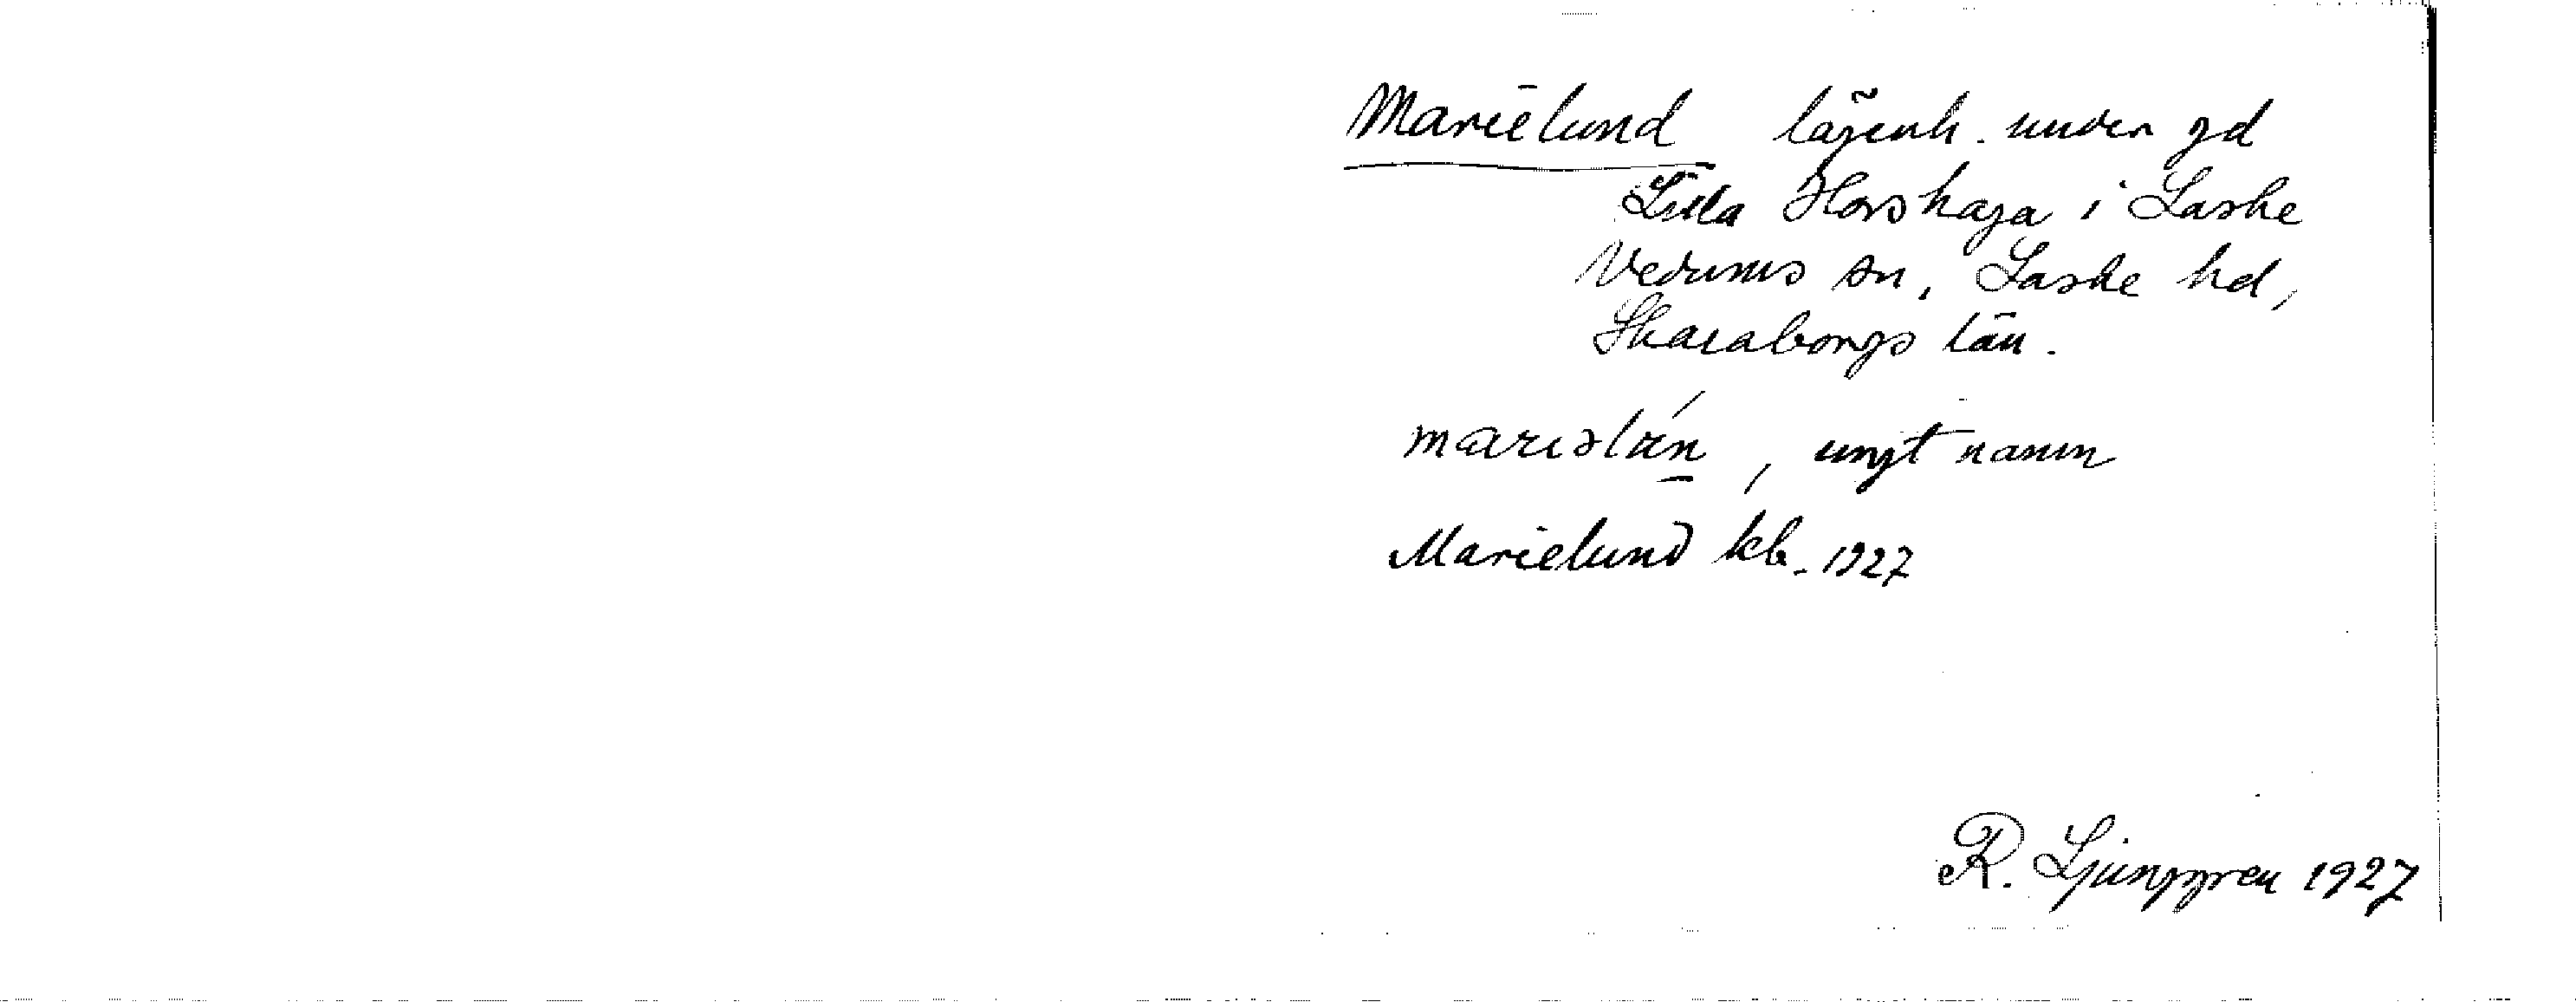 Marielund lägenh. under gd
Lilla Horshaga i Laske
Vedums sn, Laske hd,
Skaraborgs län.
marɩəlán, ungt namn
Marielund kb. 1927
R. Ljunggren 1927